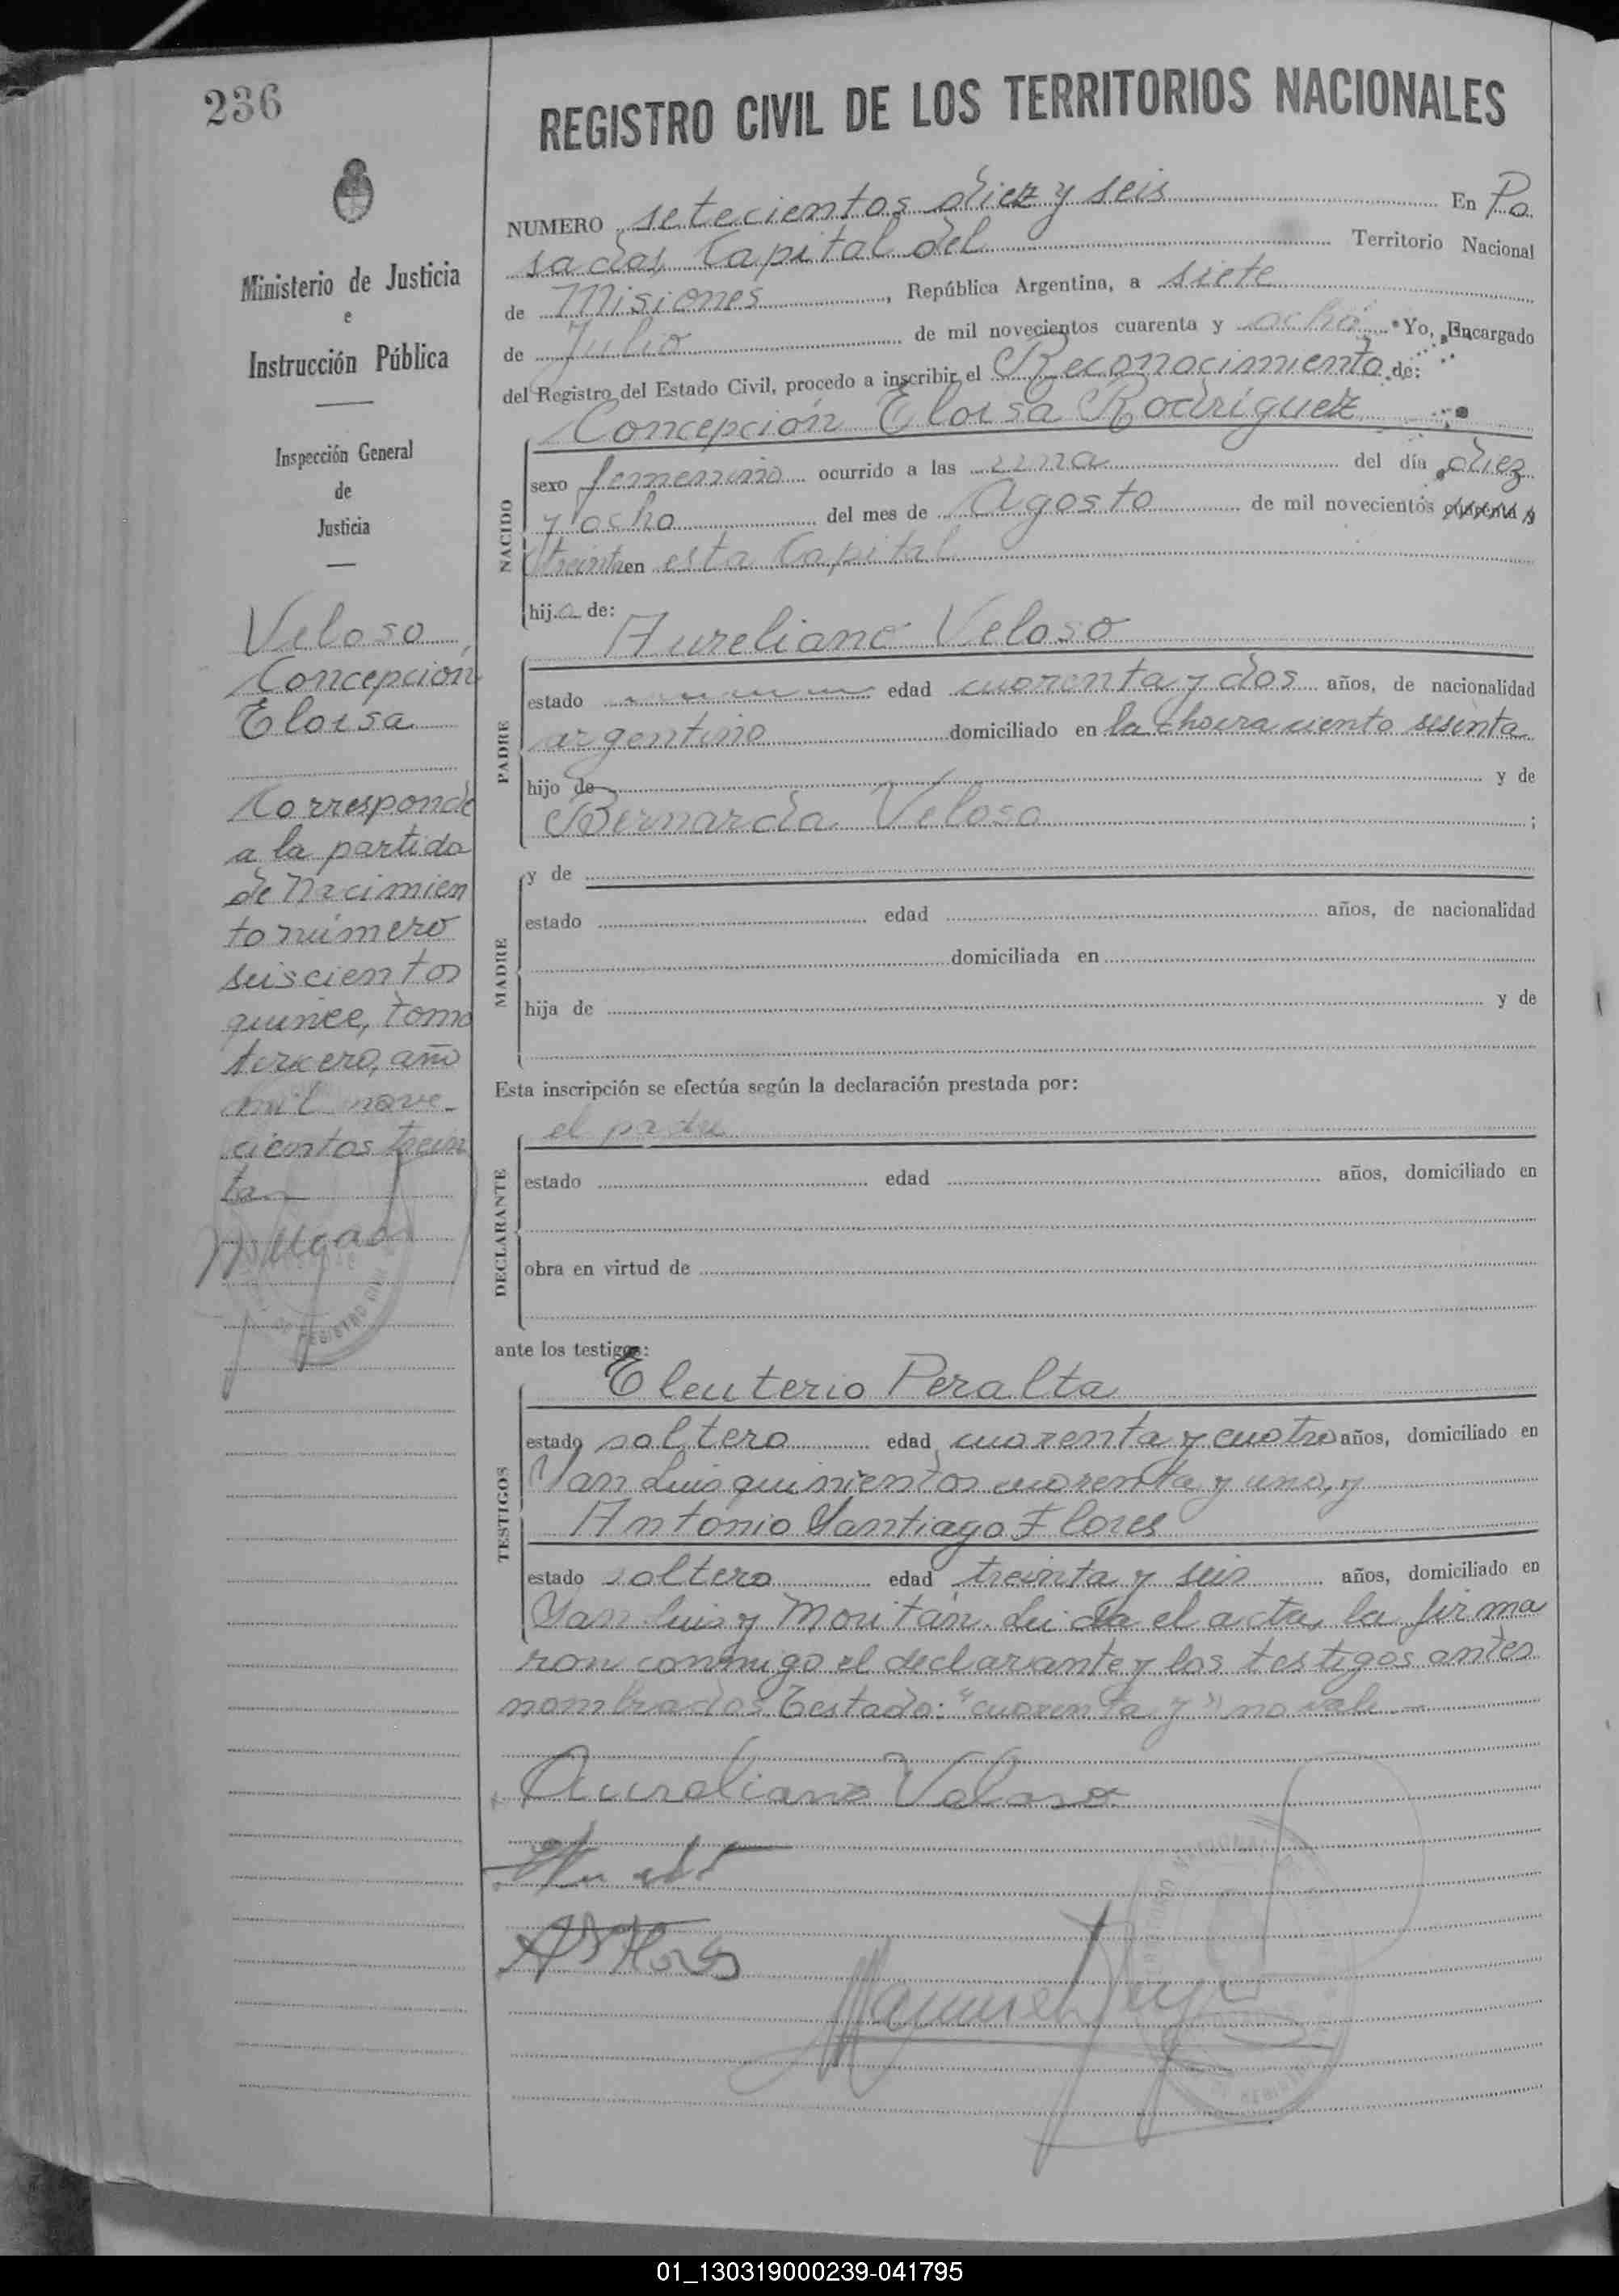 236
REGISTRO CIVIL DE LOS TERRITORIOS NACIONALES
NUMERO setecientos diez y seis En Po
sadas, Capital del Territorio Nacional
de Misiones, República Argentina, a siete
de Julio de mil novecientos cuarenta y ocho. Yo, Encargado
del Registro del Estado Civil, procedo a inscribir el Reconocimiento de:
Concepción Eloisa Rodríguez
NACIDO
sexo femenino ocurrido a las una del día diez
y ocho del mes de Agosto de mil novecientos cuarenta y
treinta en esta Capital
hija de:
Aureliano Veloso
PADRE
estado edad cuarenta y dos años, de nacionalidad
argentino domiciliado en la chacra ciento sesenta
hijo de y de
Bernarda Veloso ;
MADRE
y de
estado edad años, de nacionalidad
domiciliada en
hija de y de
Esta inscripción se efectúa según la declaración prestada por:
el padre
DECLARANTE
estado edad años, domiciliado en
obra en virtud de
ante los testigos:
Eleuterio Peralta
TESTIGOS
estado soltero edad cuarenta y cuatro años, domiciliado en
San Luis quinientos cuarenta y uno, y
Antonio Santiago Flores
estado soltero edad treinta y seis años, domiciliado en
San Luis y Moritán. Leída el acta, la firma
ron conmigo el declarante y los testigos antes
nombrados. Testado: "cuarenta y" no vale.—
Aureliano Veloso
Ministerio de Justicia
e
Instrucción Pública
Inspección General
de
Justicia
Veloso,
Concepción
Eloisa
Corresponde
a la partida
de Nacimien
to número
seiscientos
quince, tomo
tercero, año
mil nove-
cientos trein
ta
REGISTRO CIVIL
01_130319000239-041795